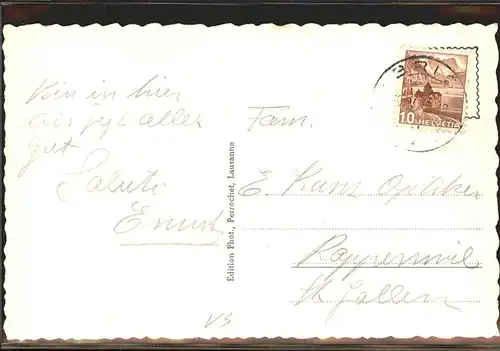 Bin in hier
bis jetzt alles
gut
Saluti
Ernst
Edition Phot., Perrochet, Lausanne
10 HELVETIA
Fam.
E. Kunz Optiker
Rapperswil
St. Gallen